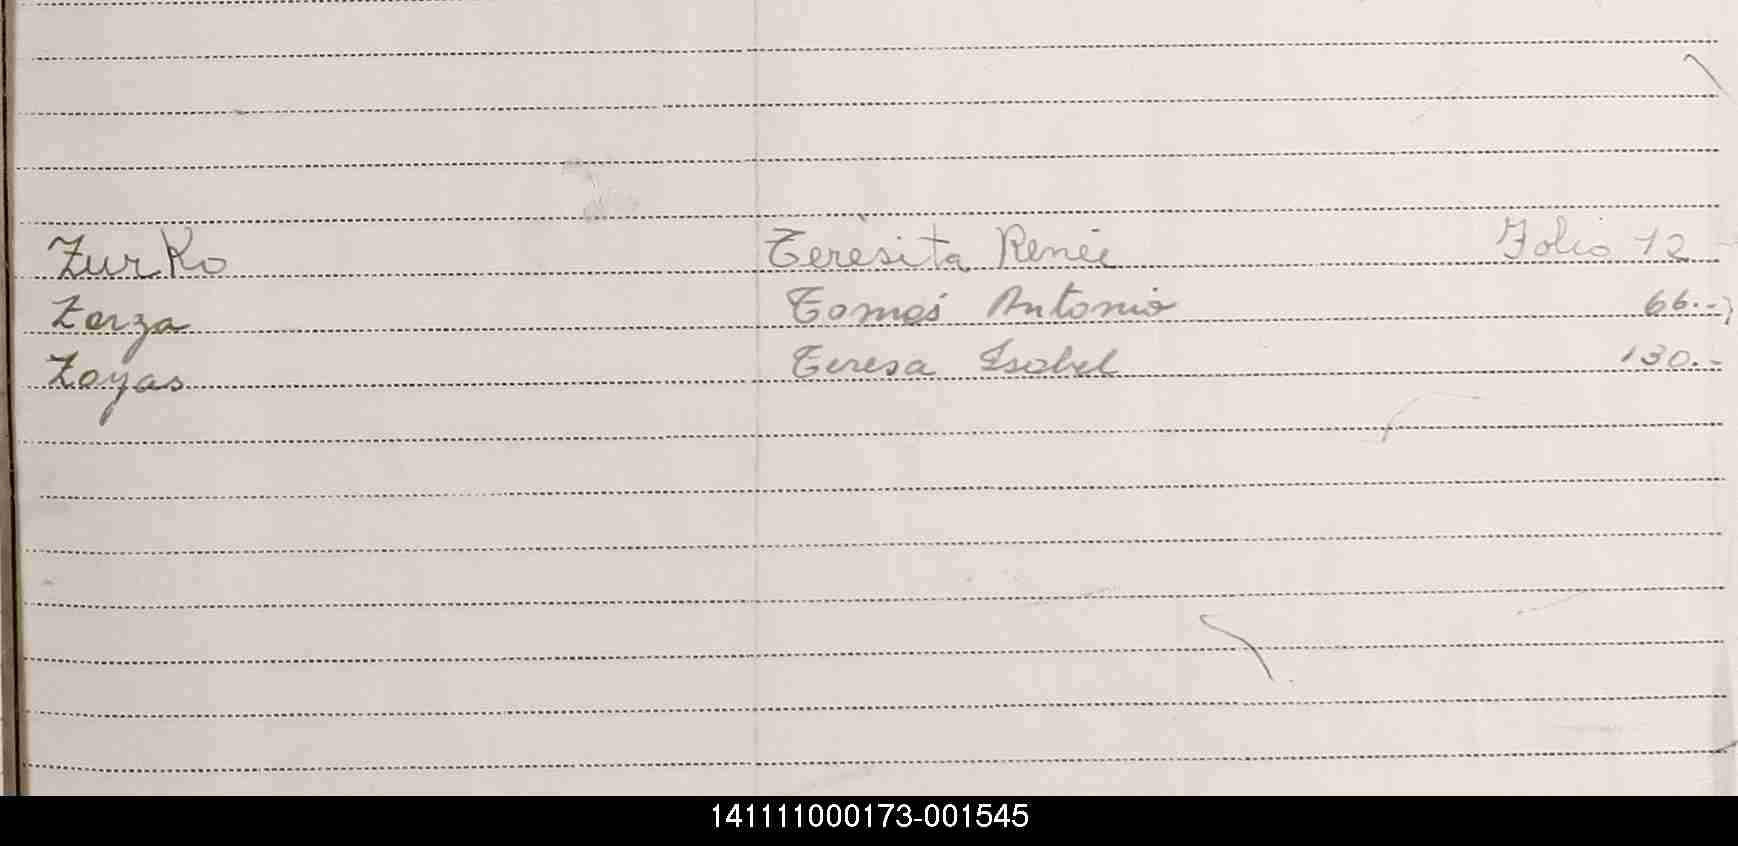 Zurko Teresita Renée Folio 12
Zarza Tomás Antonio 66.-
Zoyas Teresa Isabel 130.-
141111000173-001545